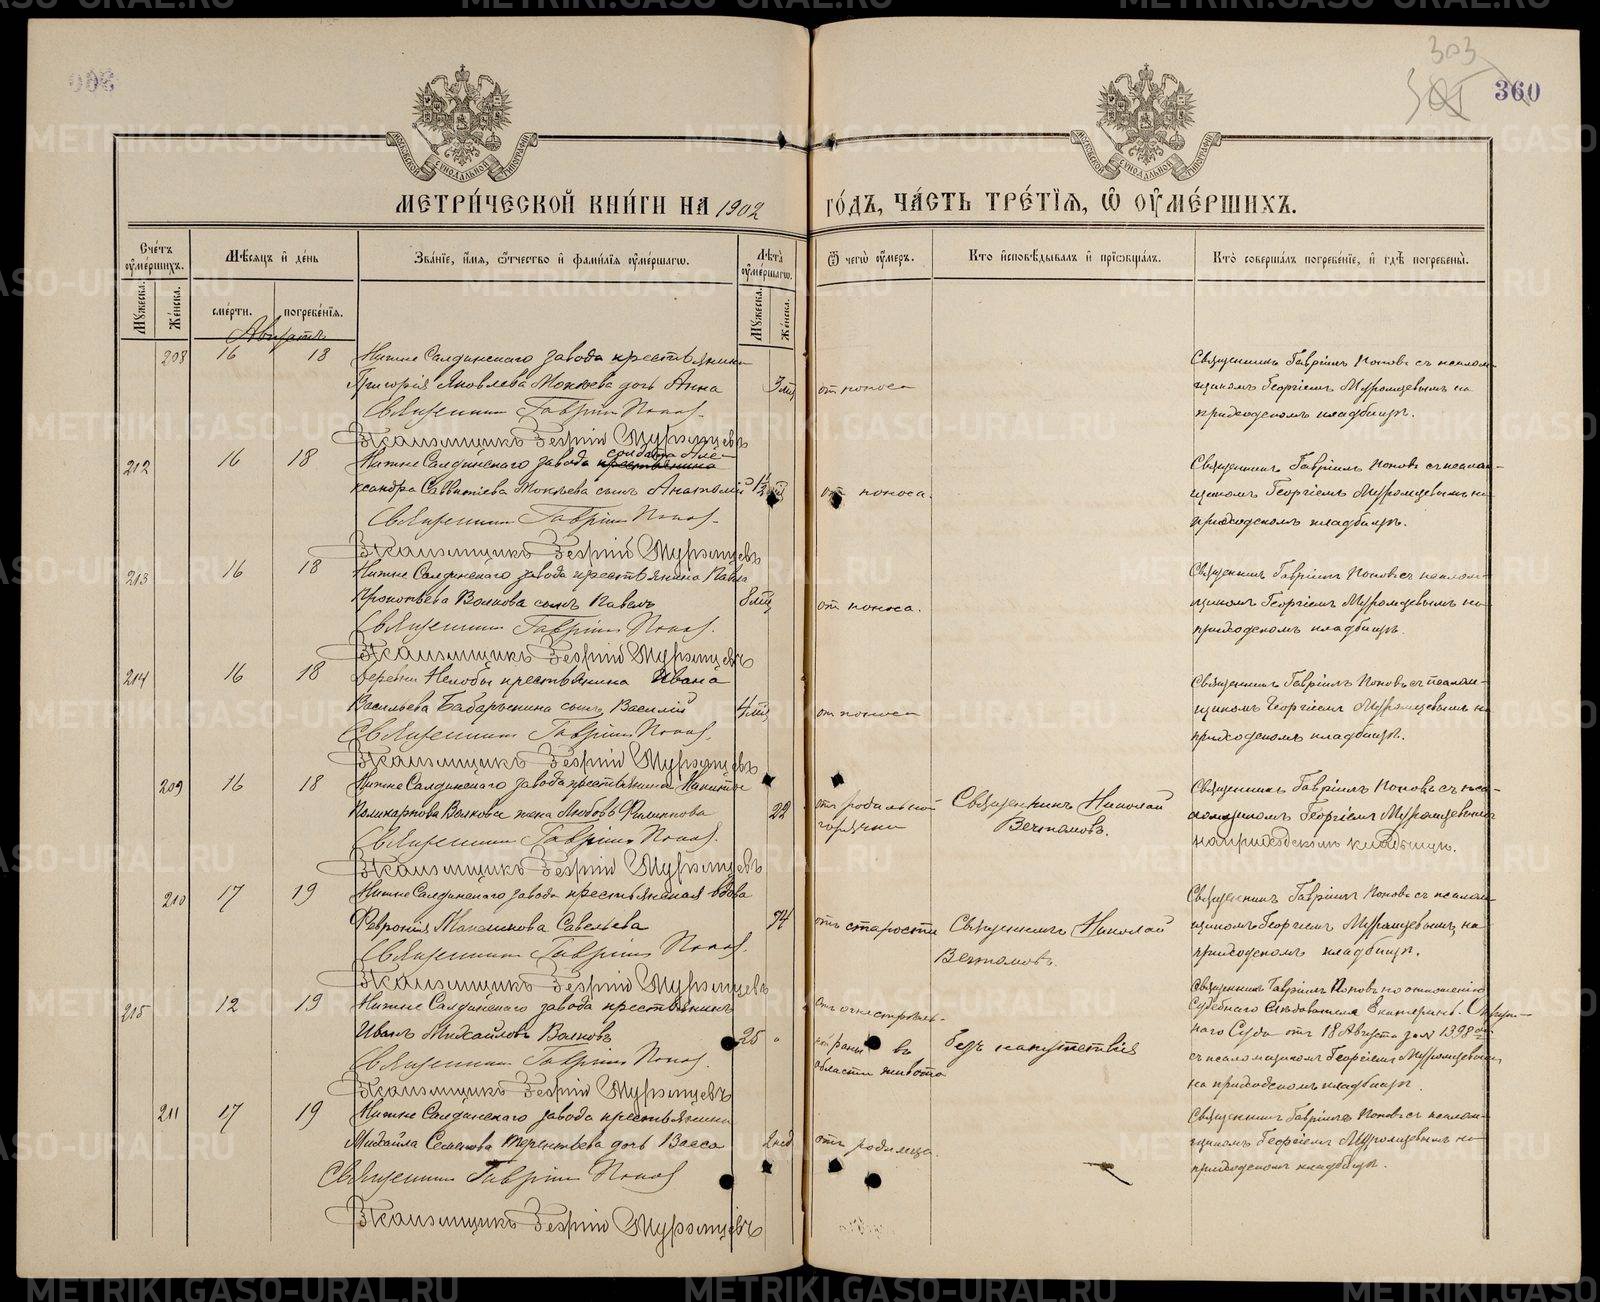 303
360
МОСКОВСКОЙ СѴНОДАЛЬНОЙ ТИПОГРАФІИ
МЕТРИ́ЧЕСКОЙ КНИ́ГИ НА 1902
МОСКОВСКОЙ СѴНОДАЛЬНОЙ ТИПОГРАФІИ
ГО́ДЪ, ЧА́СТЬ ТРЕ́ТІЯ, Ѿ ОУ҆МЕ́РШИХЪ.
Сче́тъ оу҆ме́ршихъ.
Мꙋжеска.
Же́нска.
Мѣ́сяцъ и҆ де́нь
сме́рти.
погребе́нїя.
Зва́нїе, и҆́мя, ѻ҆́тчество и҆ фами́лїя оу҆ме́ршагѡ.
Лѣ́та оу҆ме́ршагѡ.
Мꙋжеска.
Же́нска.
Ѿ чегѡ̀ оу҆́меръ.
Кто̀ и҆сповѣ́дывалъ и҆ прїѡбща́лъ.
Кто̀ соверша́лъ погребе́нїе, и҆ гдѣ̀ погребены̀.
Августъ
208 16 18 Нижне Салдинскаго завода крестьянина
Григорія Яковлева Мокѣева дочь Анна 3 мц. отъ поноса
Священникъ Гавріилъ Поповъ
Псаломщикъ Георгій Муромцевъ
Священникъ Гавріилъ Поповъ съ псалом-
щикомъ Георгіемъ Муромцевымъ на
приходскомъ кладбищѣ.
212 16 18 Нижне Салдинскаго завода крестьянина солдата Але-
ксандра Савватіева Мокѣева сынъ Анатолій 1½ отъ поноса.
Священникъ Гавріилъ Поповъ
Псаломщикъ Георгій Муромцевъ
Священникъ Гавріилъ Поповъ съ псалом-
щикомъ Георгіемъ Муромцевымъ на
приходскомъ кладбищѣ.
213 16 18 Нижне Салдинскаго завода крестьянина Павла
Прокопьева Волкова сынъ Павелъ 8 мц. отъ поноса.
Священникъ Гавріилъ Поповъ
Псаломщикъ Георгій Муромцевъ
Священникъ Гавріилъ Поповъ съ псалом-
щикомъ Георгіемъ Муромцевымъ на
приходскомъ кладбищѣ.
214 16 18 Деревни Нелобы крестьянина Ивана
Васильева Бабарыкина сынъ Василій 4 мц. отъ поноса
Священникъ Гавріилъ Поповъ
Псаломщикъ Георгій Муромцевъ
Священникъ Гавріилъ Поповъ съ псалом-
щикомъ Георгіемъ Муромцевымъ на
приходскомъ кладбищѣ.
209 16 18 Нижне Салдинскаго завода крестьянина Никиты
Поликарпова Волкова жена Любовь Филиппова 22 отъ родильной
горячки
Священникъ Гавріилъ Поповъ
Псаломщикъ Георгій Муромцевъ
Священникъ Николай
Вечтомовъ.
Священникъ Гавріилъ Поповъ съ пса-
ломщикомъ Георгіемъ Муромцевымъ
на приходскомъ кладбищѣ.
210 17 19 Нижне Салдинскаго завода крестьянская вдова
Февронія Савельева 74 отъ старости
Священникъ Гавріилъ Поповъ
Псаломщикъ Георгій Муромцевъ
Священникъ Николай
Вечтомовъ.
Священникъ Гавріилъ Поповъ съ псалом-
щикомъ Георгіемъ Муромцевымъ, на
приходскомъ кладбищѣ.
215 12 19 Нижне Салдинскаго завода крестьянинъ
Иванъ Михайловъ Волковъ 25 отъ огнестрѣль-
ной раны въ
области живота
Священникъ Гавріилъ Поповъ
Псаломщикъ Георгій Муромцевъ
безъ напутствія
Священникъ Гавріилъ Поповъ по отношенію
Судебнаго Слѣдователя Екатеринб. Окруж-
наго Суда отъ 18 Августа за № 1398
съ псаломщикомъ Георгіемъ Муромцевымъ
на приходскомъ кладбищѣ.
211 17 19 Нижне Салдинскаго завода крестьянина
Михаила Семенова Терентьева дочь Васса 2 нед отъ родимца.
Священникъ Гавріилъ Поповъ
Псаломщикъ Георгій Муромцевъ
Священникъ Гавріилъ Поповъ съ псалом-
щикомъ Георгіемъ Муромцевымъ на
приходскомъ кладбищѣ.
METRIKI.GASO-URAL.RU